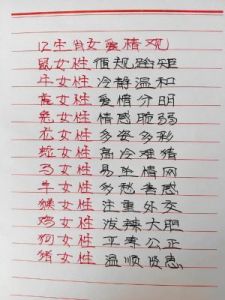 12生肖女爱情观
鼠女性循规蹈矩
牛女性冷静温和
虎女性爱情分明
兔女性情感脆弱
龙女性多姿多彩
蛇女性高冷难猜
马女性易 情网
羊女性多愁善感
猴女性注重外交
鸡女性泼辣大胆
狗女性平等公正
猪女性温顺贤惠